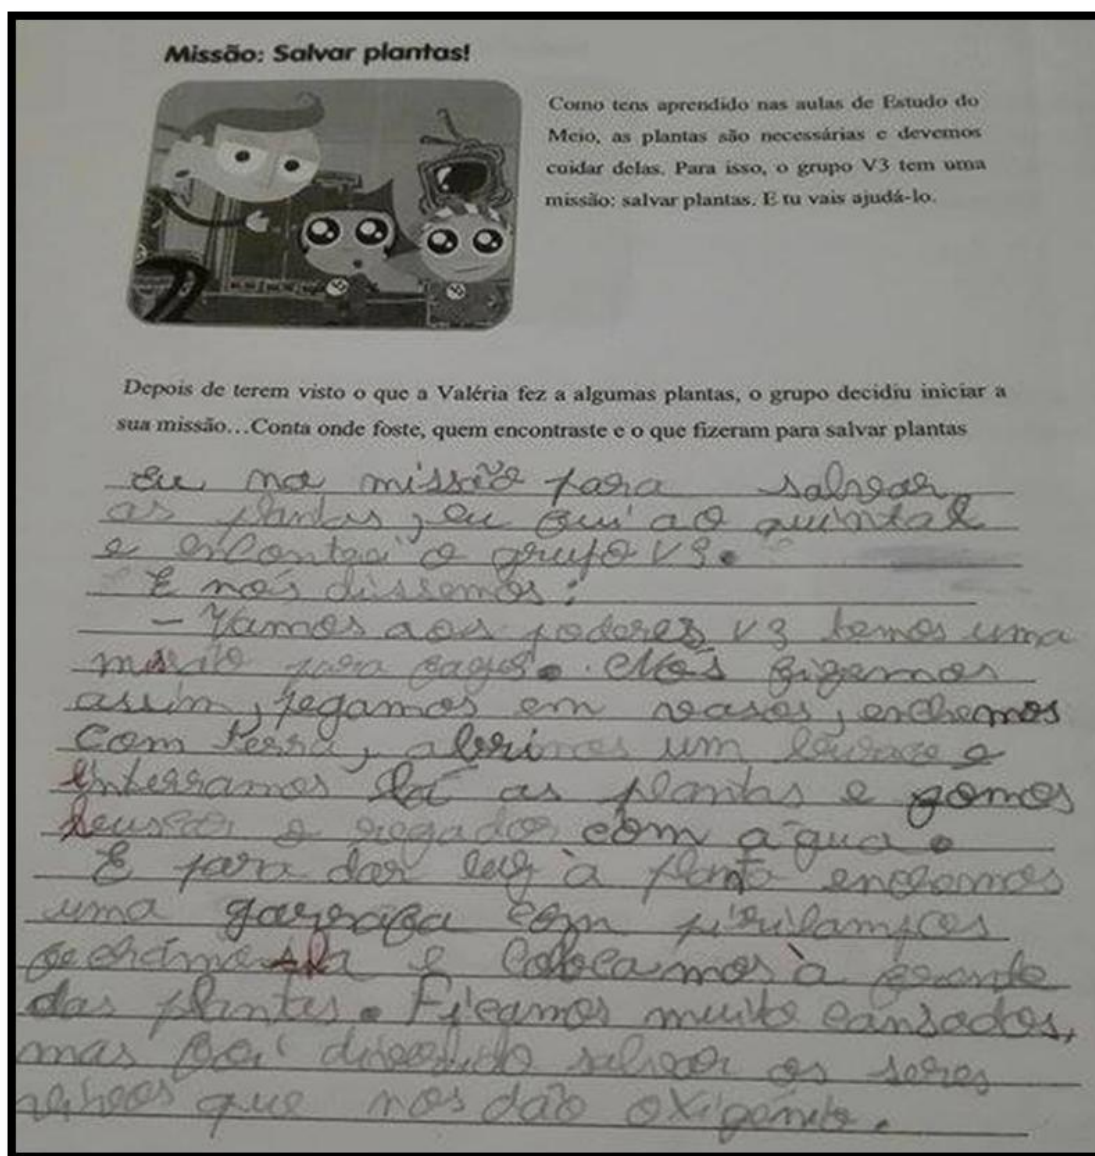 Missão: Salvar plantas!
Como tens aprendido nas aulas de Estudo do
Meio, as plantas são necessárias e devemos
cuidar delas. Para isso, o grupo V3 tem uma
missão: salvar plantas. E tu vais ajudá-lo.
Depois de terem visto o que a Valéria fez a algumas plantas, o grupo decidiu iniciar a
sua missão…Conta onde foste, quem encontraste e o que fizeram para salvar plantas
Eu na missão para salvar
as plantas, eu fui ao quintal
e encontrei o grupo V3.
E nós dissemos:
- Vamos aos poderes V3 temos uma
missão para . Nós fizemos
assim, pegamos em vasos, enchemos
com terra, abrimos um e
enterramos lá as plantas e fomos
buscar o regador com água.
E para dar luz à planta enchemos
uma garrafa com pirilampos
fechámo-la e colocamos à frente
das plantas. Ficamos muito cansados,
mas foi divertido salvar os seres
vivos que nos dão oxigénio.